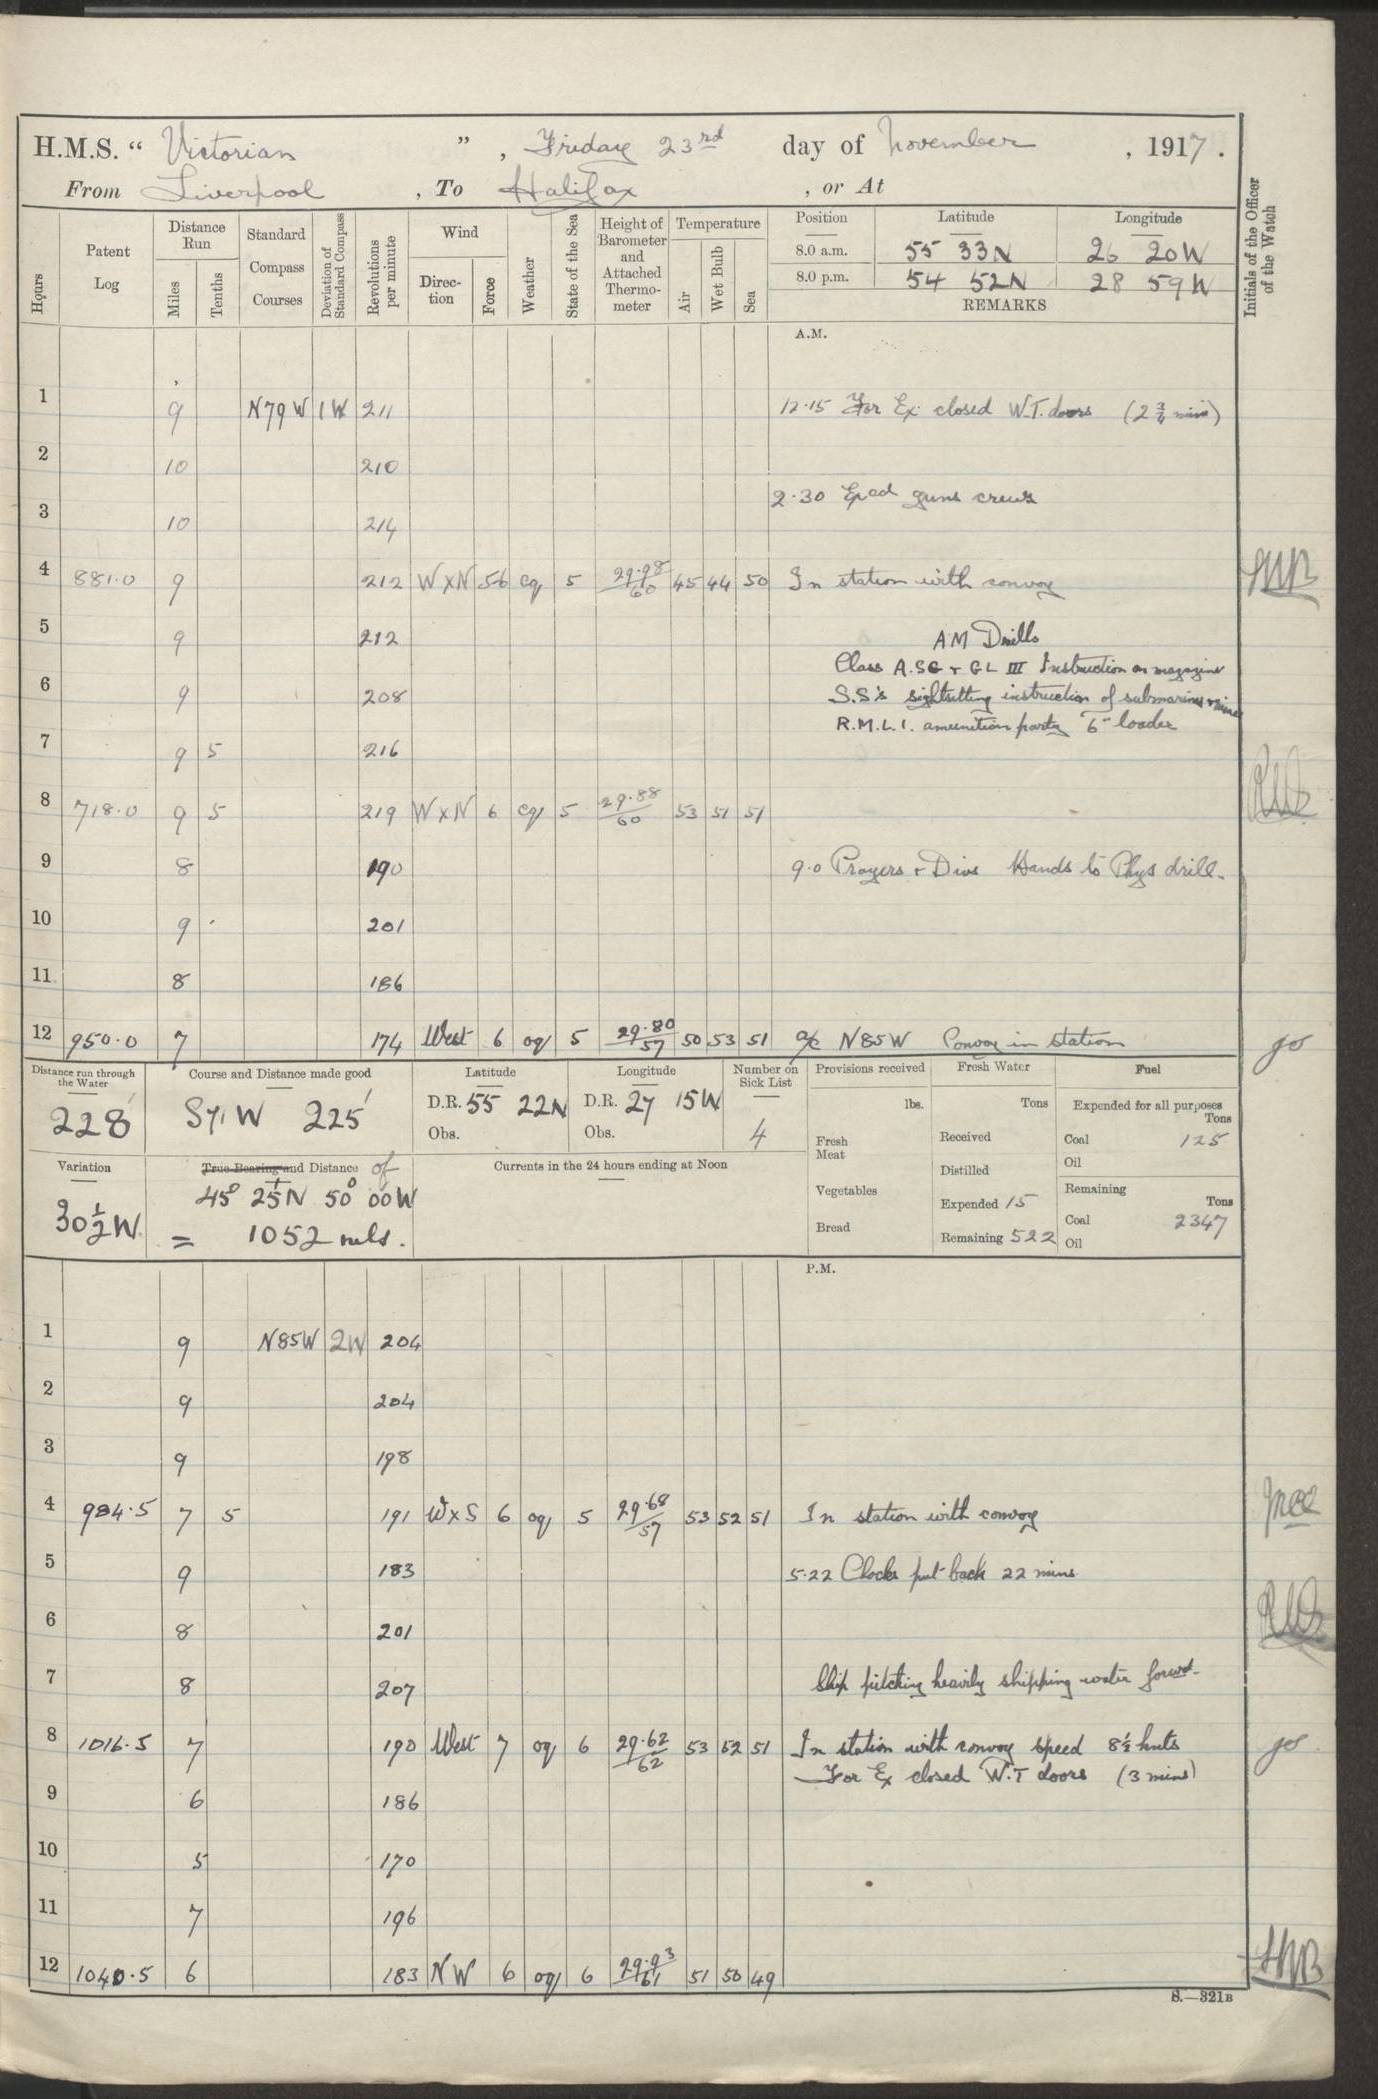 H.M.S. “ Victorian ” , Friday 23rd day of November , 1917 .
From Liverpool , To Halifax , or At
Hours
Patent Log
Distance Run
Miles
Tenths
Standard Compass Courses
Deviation of Standard Compass
Revolutions per minute
Wind
Direction
Force
Weather
State of the Sea
Height of Barometer and Attached Thermometer
Temperature
Air
Wet Bulb
Sea
Position Latitude Longitude
8.0 a.m. 55 33N 26 20W
8.0 p.m. 54 52N 28 59W
REMARKS
Initials of the Officer of the Watch
A.M.
1 9 N79W 1W 211 12.15 For Ex. closed W.T. doors (2 3/4 mins)
2 10 210
2.30 Exced guns crews
3 10 214
4 881.0 9 212 WxN 56 cq 5 29.98/60 45 44 50 In station with convoy
5 9 212 AM Drills
Class A.SG + GL III Instruction on magazine
6 9 208 S.S's sightsetting instruction of submarines
R.M.L.I. amunition party 6" loader
7 9 5 216
8 718.0 9 5 219 WxN 6 cq 5 29.88/60 53 51 51
9 8 190 9.0 Prayers + Divs Hands to Phys drill.
10 9 201
11 8 186
12 950.0 7 174 West 6 oq 5 29.80/57 50 53 51 a/c N85W Convoy in station
Distance run through the Water 228'
Course and Distance made good S71W 225'
Latitude D.R. 55 22N Obs.
Longitude D.R. 27 15W Obs.
Number on Sick List 4
Provisions received lbs.
Fresh Meat
Vegetables
Bread
Fresh Water Tons
Received
Distilled
Expended 15
Remaining 522
Fuel
Expended for all purposes Tons
Coal 125
Oil
Remaining Tons
Coal 2347
Oil
Variation 30 1/2 W.
True Bearing and Distance of
45° 25'N 50° 00'W
= 1052 mls.
Currents in the 24 hours ending at Noon
P.M.
1 9 N85W 2W 204
2 9 204
3 9 198
4 984.5 7 5 191 WxS 6 oq 5 29.68/57 53 52 51 In station with convoy
5 9 183 5.22 Clocks put back 22 mins
6 8 201
7 8 207 Ship pitching heavily shipping water forwd.
8 1016.5 7 190 West 7 oq 6 29.62/62 53 52 51 In station with convoy speed 8½ knts
For Ex closed W.T doors (3 mins)
9 6 186
10 5 170
11 7 196
12 1040.5 6 183 NW 6 oq 6 29.93/61 51 50 49
S.—321B